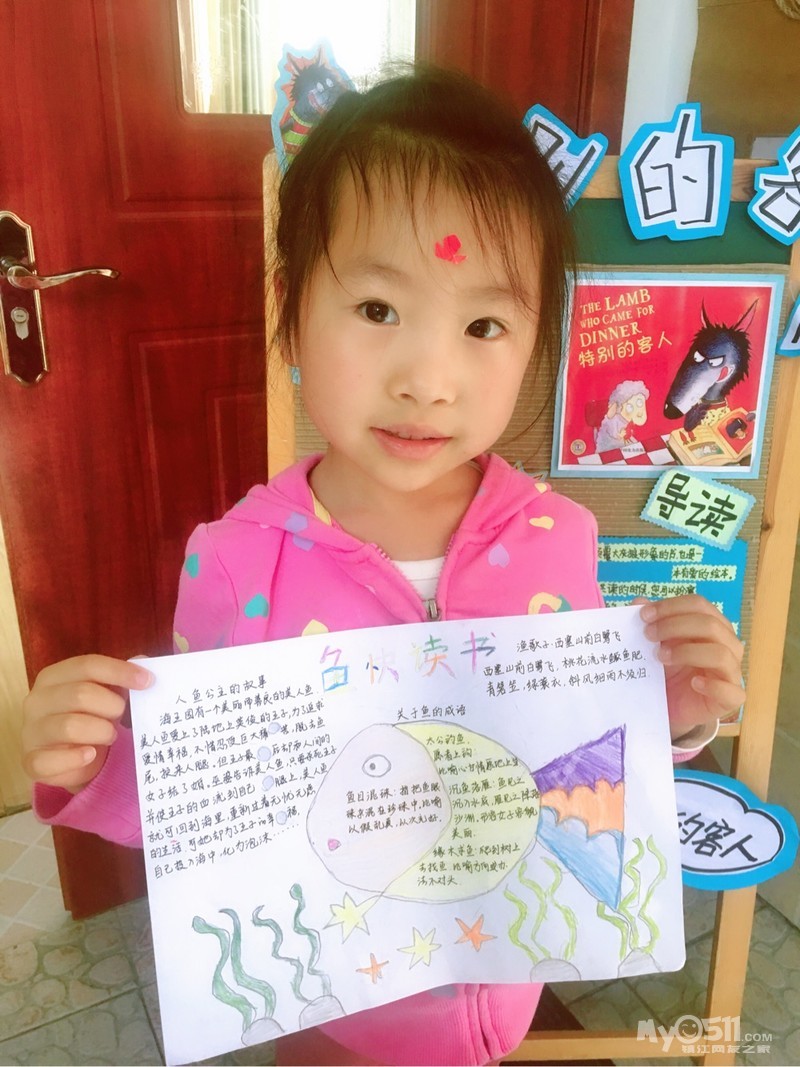 的
THE LAMB
WHO CAME FOR
DINNER
特别的客人
导读
本有爱的绘本。
的客人
鱼快读书
人鱼公主的故事
海王国有一个美丽而善良的美人鱼.
美人鱼爱上了陆地上英俊的王子,为了追求
爱情幸福,不惜忍受巨大痛 苦,脱去鱼
尾,换来人腿。但王子最 后却和人间的
女子结了婚。巫婆告诉美人鱼,只要杀死王子
并使王子的血流到自己 腿上,美人鱼
就可回到海里,重新过着无忧无虑
的生活.可她却为了王子的幸 福,
自己投入海中,化为泡沫……
渔歌子·西塞山前白鹭飞
西塞山前白鹭飞,桃花流水鳜鱼肥.
青箬笠,绿蓑衣,斜风细雨不须归.
关于鱼的成语
鱼目混珠:指把鱼眼
珠子混在珍珠中,比喻
以假乱真,以次充好.
太公钓鱼,
愿者上钩:
比喻心甘情愿地上当
沉鱼落雁:鱼见之
沉入水底,雁见之降落
沙洲,形容女子容貌
美丽.
缘木求鱼:爬到树上
去找鱼,比喻方向或办
法不对头.
My0511.COM
镇江网友之家